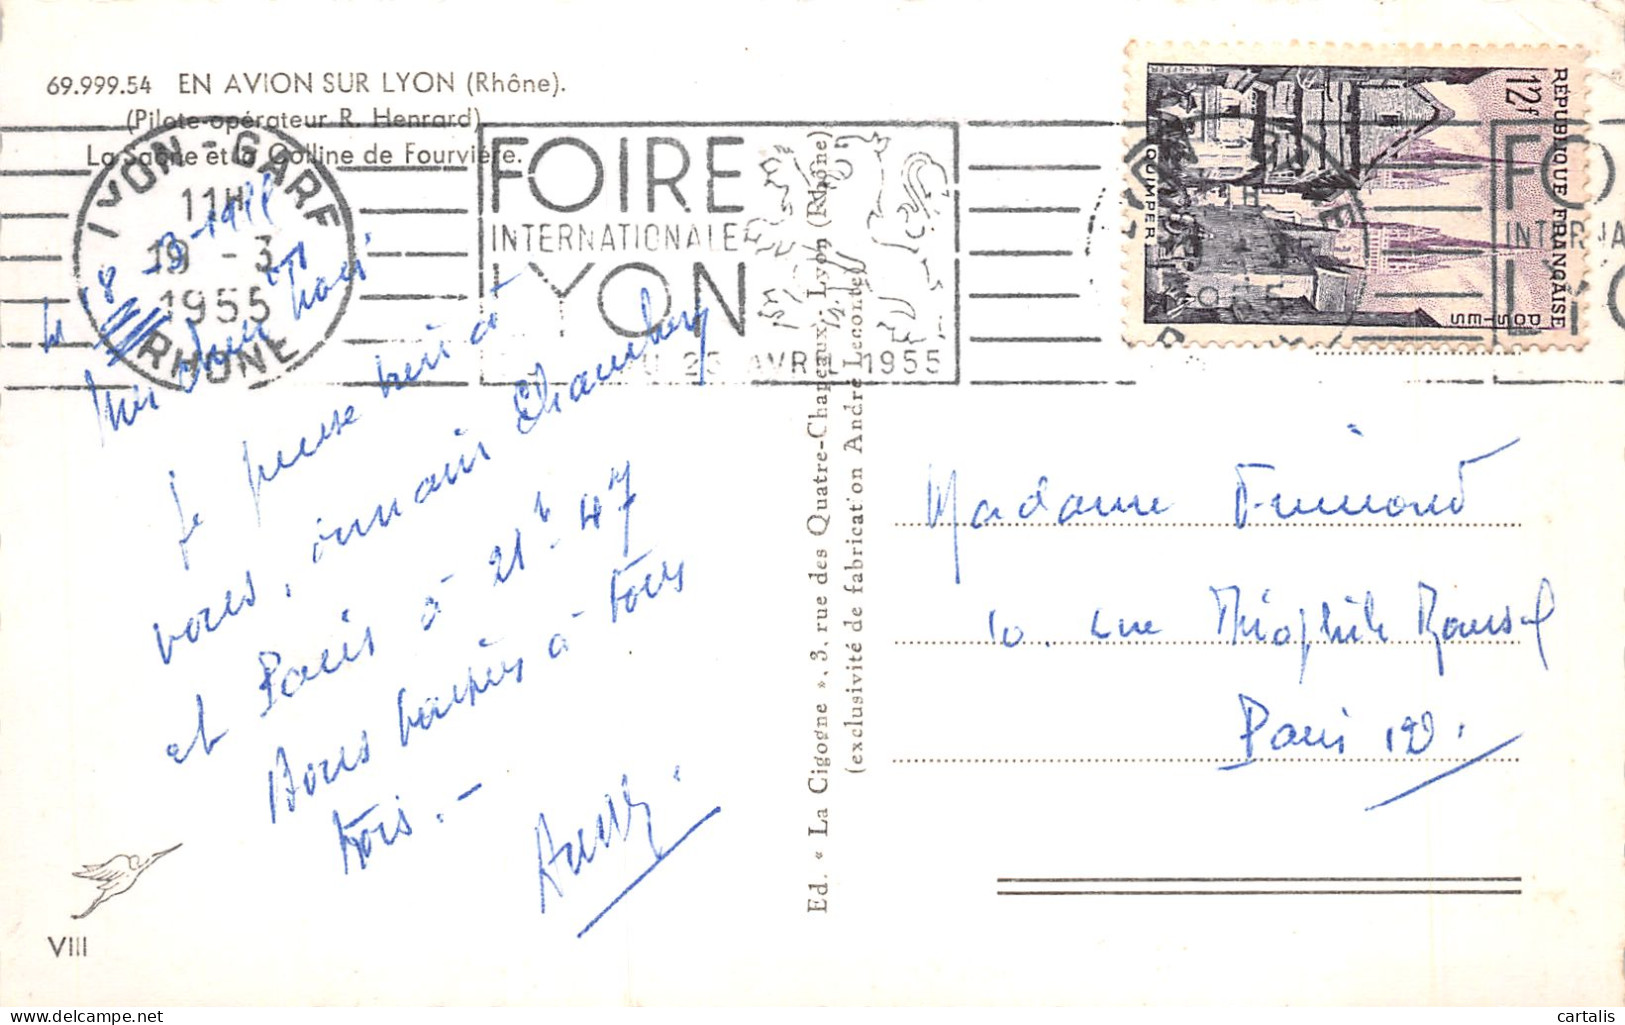 69.999.54 EN AVION SUR LYON (Rhône).
(Pilote-opérateur R. Henrard)
La Saône et la Colline de Fourvière.
LYON-GARE
11H
19 - 3
1955
RHONE
FOIRE
INTERNATIONALE
LYON
AVRIL 1955
RÉPUBLIQUE FRANÇAISE
12F
POSTES
QUIMPER
FO
INTERNA
LYO
le 18-3-1955
Mes chers
Je pense
vous, Chambéry
et Paris à 21h 47
Bons baisers à tous
trois. -
Ed. « La Cigogne », 3, rue des Quatre-Chapeaux, Lyon (Rhône)
(exclusivité de fabrication André Leconte)
Madame
10. rue Théophile Roussel
Paris 12e.
VIII
cartalis